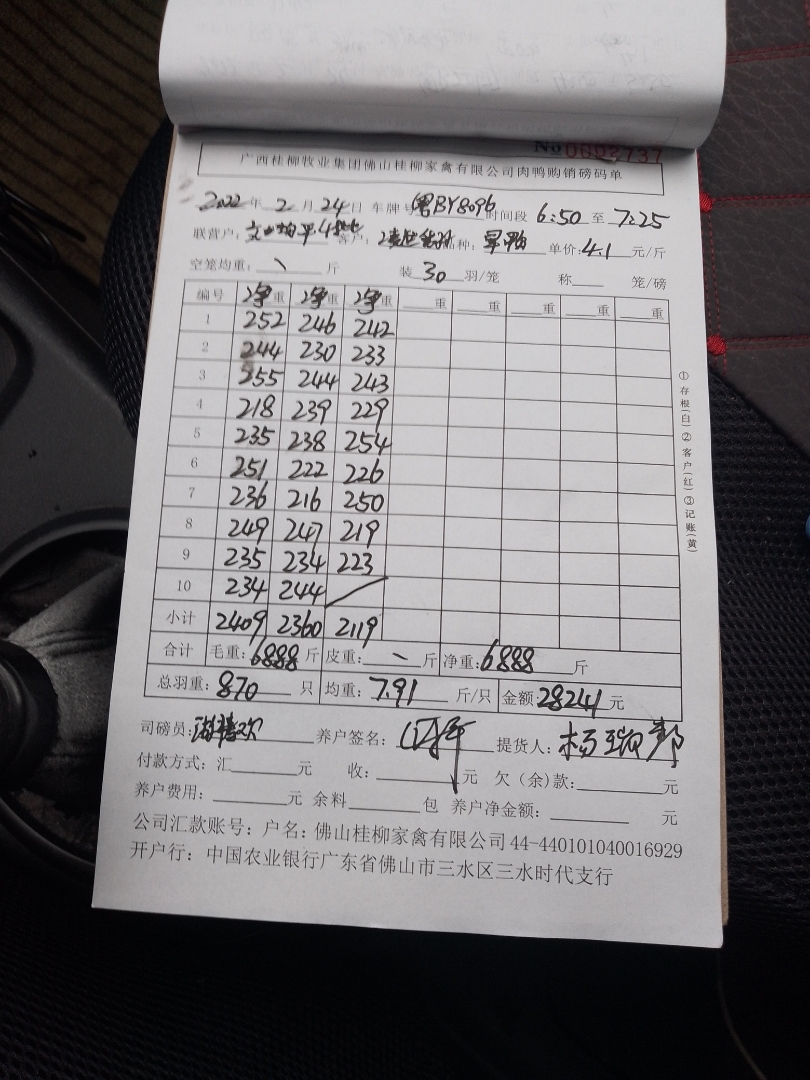 No 0002737
广西桂柳牧业集团佛山桂柳家禽有限公司肉鸭购销磅码单
2022年 2月 24日 车牌号 粤BY8096 时间段 6:50 至 7:25
联营户: 客户: 品种: 单价: 4.1 元/斤
空笼均重: 斤 装 30 羽/笼 称 笼/磅
编号 净重 净重 净重 重 重 重 重 重
1 252 246 242
2 244 230 233
3 255 244 243
4 218 239 229
5 235 238 254
6 251 222 226
7 236 216 250
8 249 247 219
9 235 234 223
10 234 244
小计 2409 2360 2119
合计 毛重: 6888 斤 皮重: 斤 净重: 6888 斤
总羽重: 870 只 均重: 7.91 斤/只 金额: 28241 元
司磅员: 养户签名: 提货人: 杨
付款方式: 汇 元 收: 元 欠(余)款: 元
养户费用: 元 余料 包 养户净金额: 元
公司汇款账号: 户名: 佛山桂柳家禽有限公司 44-440101040016929
开户行: 中国农业银行广东省佛山市三水区三水时代支行
①存根(白)②客户(红)③记账(黄)